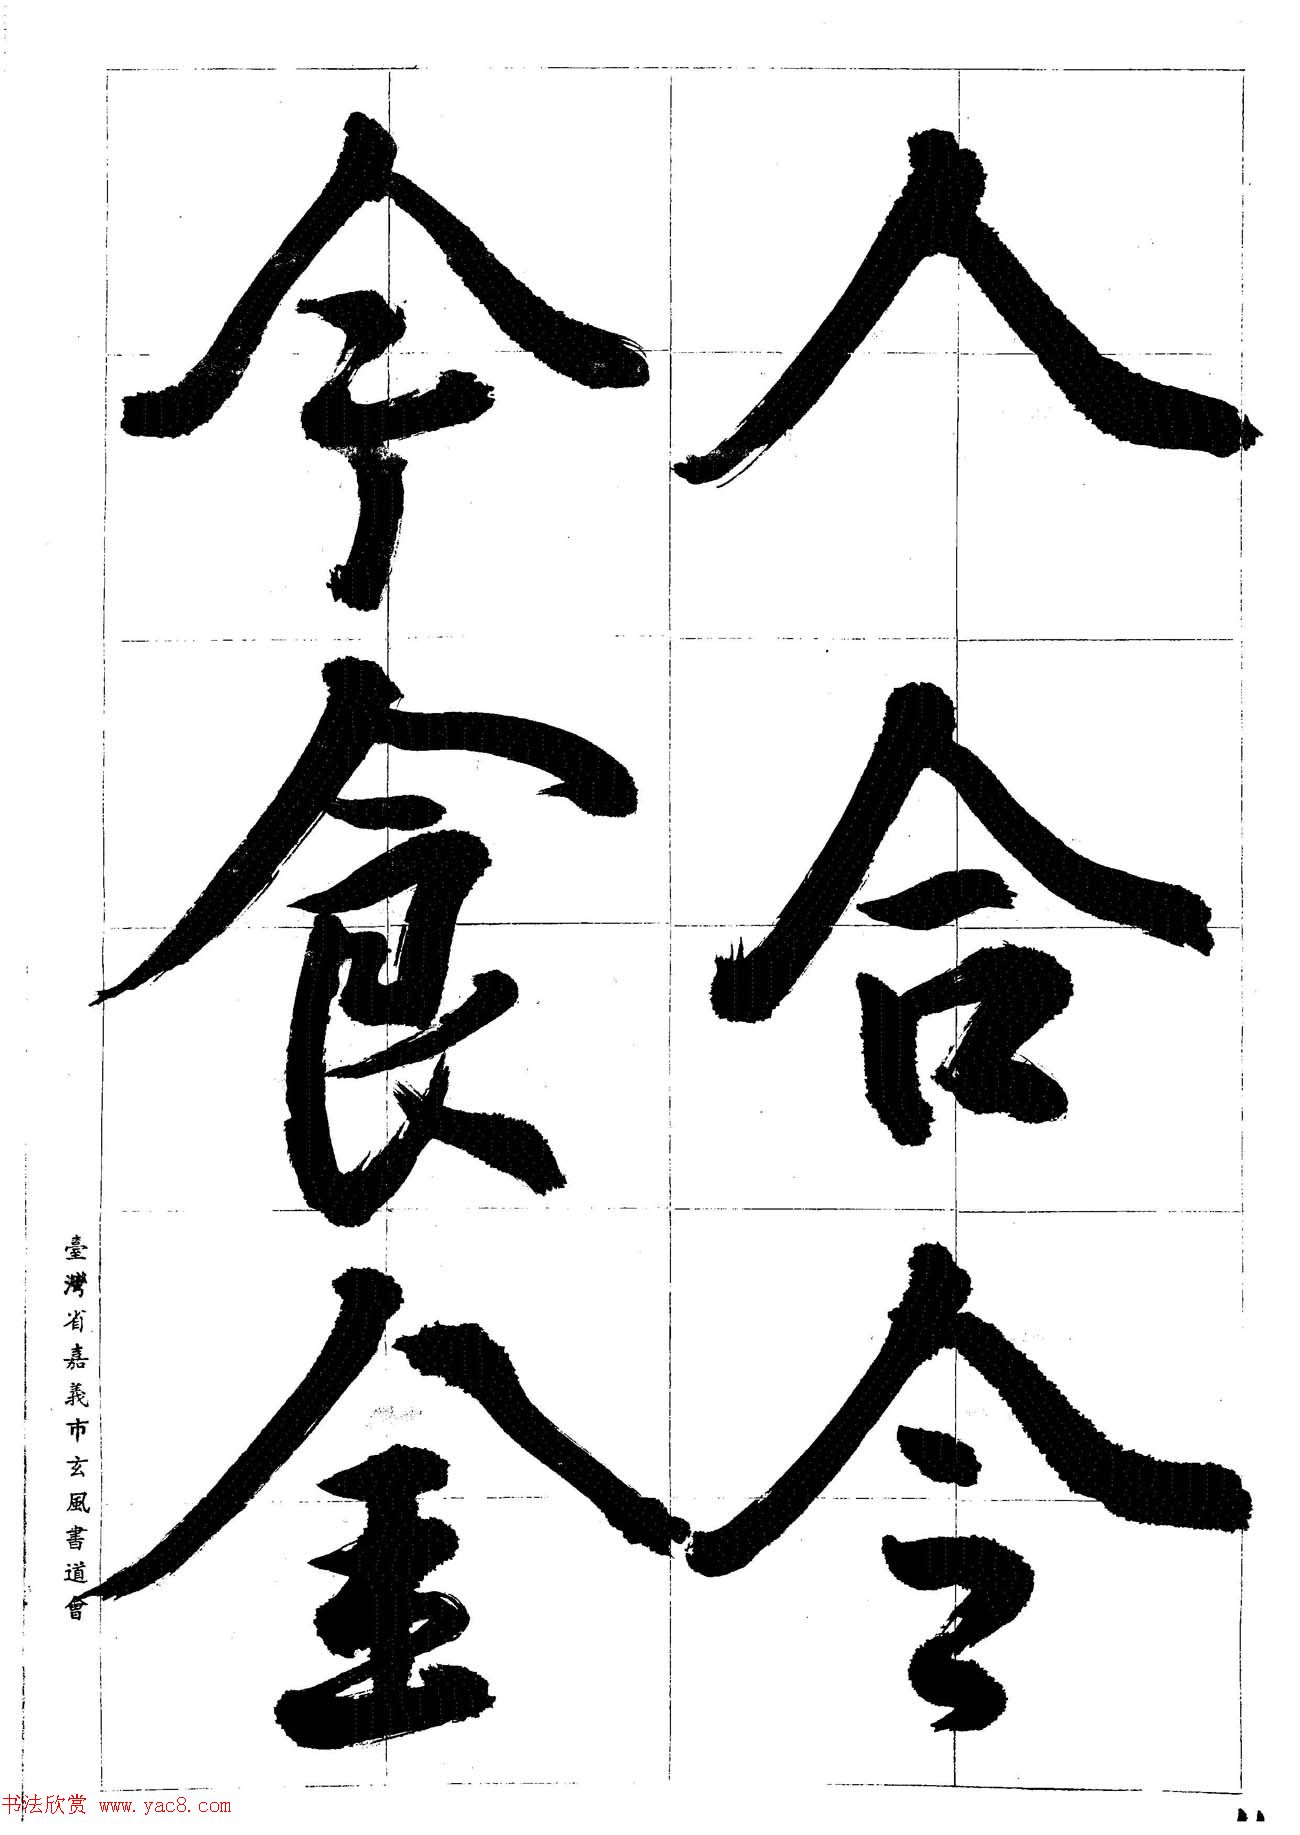 人合令
余食金
臺灣省嘉義市玄風書道會
书法欣赏 www.yac8.com